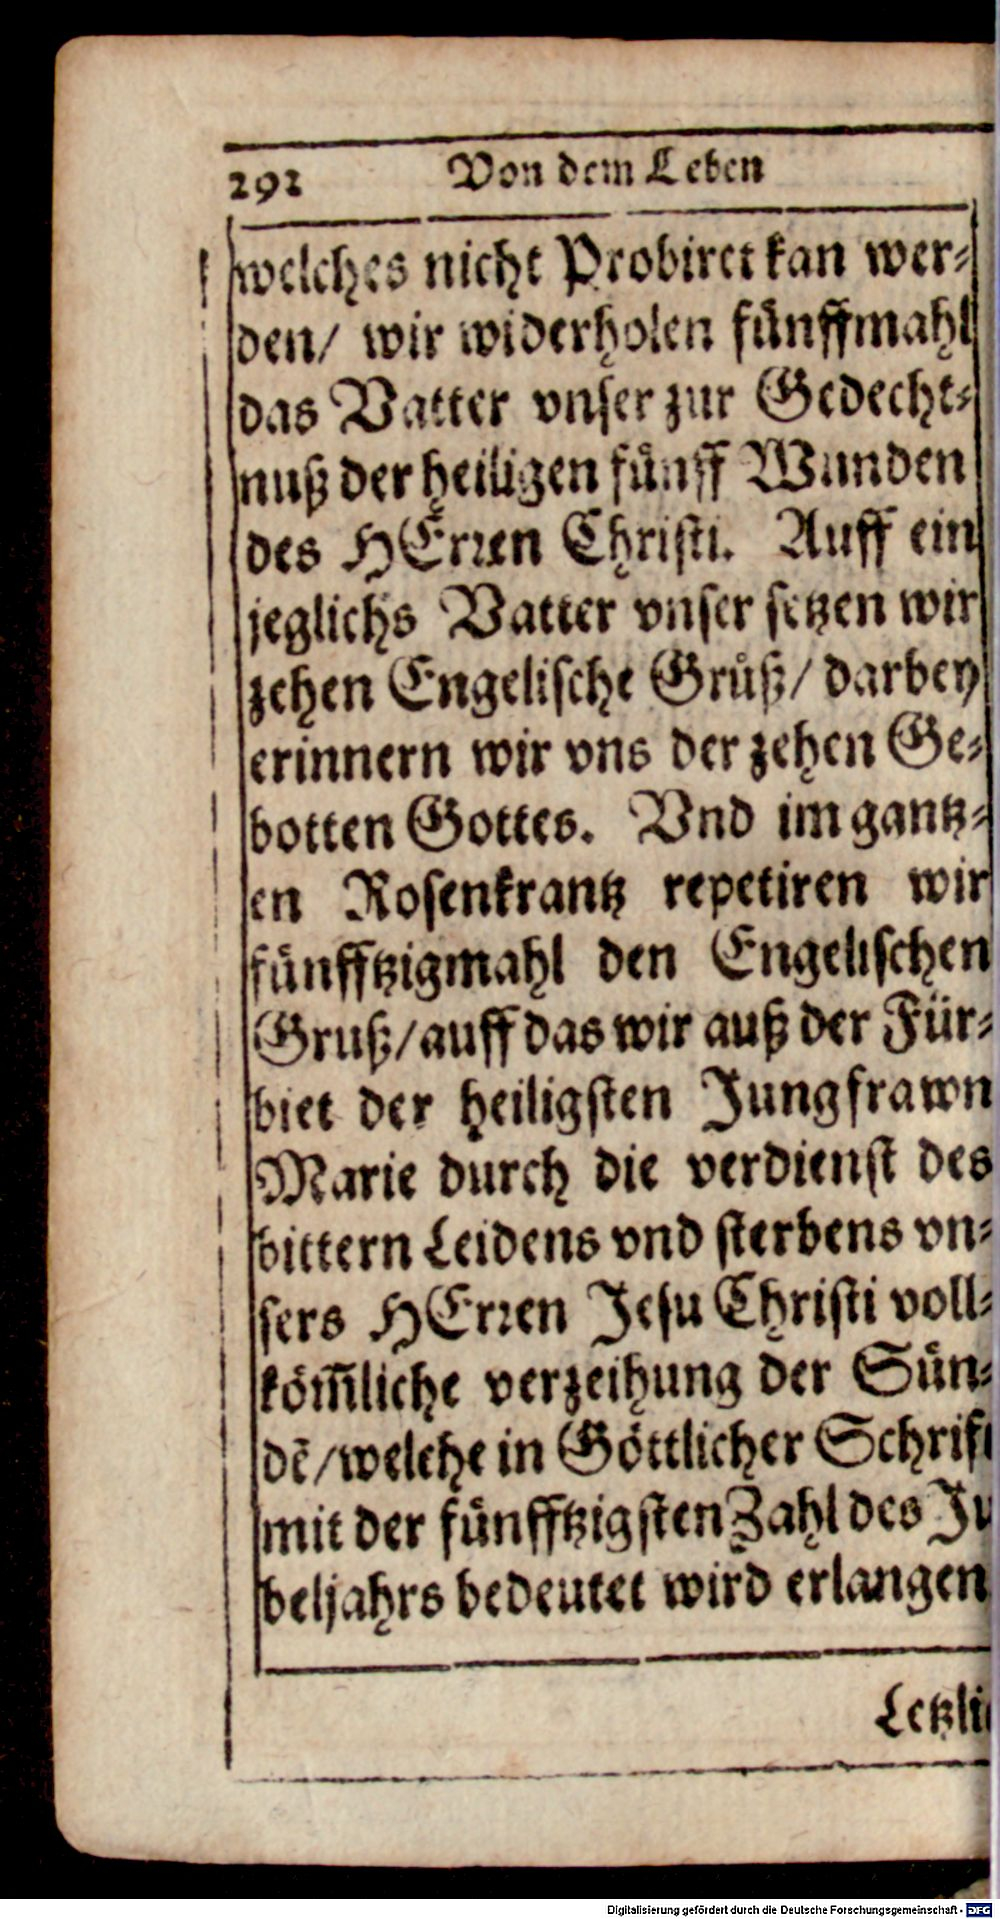 292 Von dem Leben
welches nicht Probiret kan wer-
den/ wir widerholen fünffmahl
das Vatter vnser zur Gedecht-
nuß der heiligen fünff Wunden
des HErren Christi. Auff ein
jeglichs Vatter vnser setzen wir
zehen Engelische Grůß/ darbey
erinnern wir vns der zehen Ge-
botten Gottes. Vnd im gantz-
en Rosenkrantz repetiren wir
fünfftzigmahl den Engelischen
Gruß/ auff das wir auß der Für-
biet der heiligsten Jungfrawn
Marie durch die verdienst des
bittern Leidens vnd sterbens vn-
sers HErren Jesu Christi voll-
köm̃liche verzeihung der Sün-
dẽ/ welche in Göttlicher Schrift
mit der fünfftzigsten Zahl des Ju
beljahrs bedeutet wird erlangen
Letzli
Digitalisierung gefördert durch die Deutsche Forschungsgemeinschaft - DFG